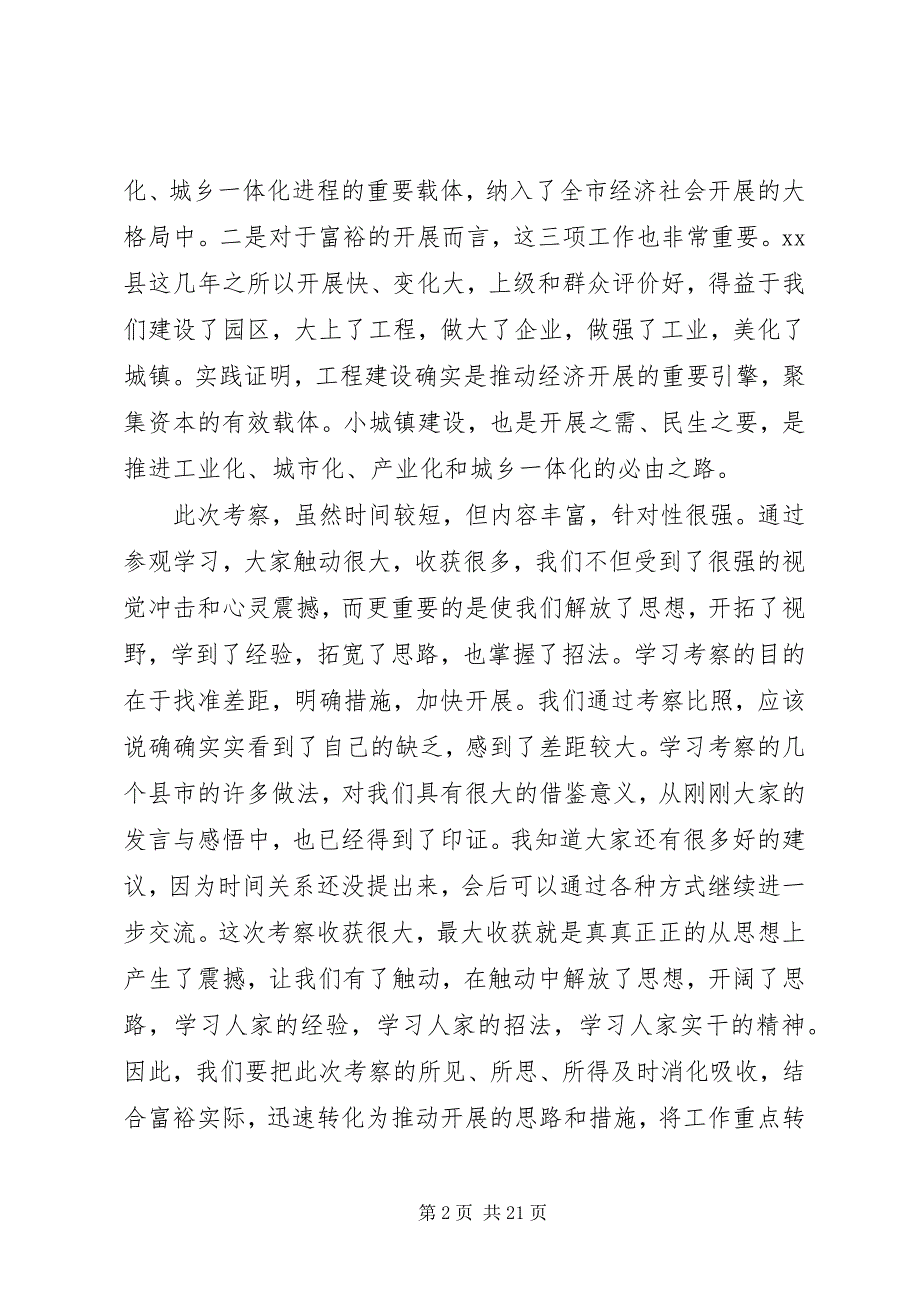 化、城乡一体化进程的重要载体，纳入了全市经济社会开展的大
格局中。二是对于富裕的开展而言，这三项工作也非常重要。xx
县这几年之所以开展快、变化大，上级和群众评价好，得益于我
们建设了园区，大上了工程，做大了企业，做强了工业，美化了
城镇。实践证明，工程建设确实是推动经济开展的重要引擎，聚
集资本的有效载体。小城镇建设，也是开展之需、民生之要，是
推进工业化、城市化、产业化和城乡一体化的必由之路。
此次考察，虽然时间较短，但内容丰富，针对性很强。通过
参观学习，大家触动很大，收获很多，我们不但受到了很强的视
觉冲击和心灵震撼，而更重要的是使我们解放了思想，开拓了视
野，学到了经验，拓宽了思路，也掌握了招法。学习考察的目的
在于找准差距，明确措施，加快开展。我们通过考察比照，应该
说确确实实看到了自己的缺乏，感到了差距较大。学习考察的几
个县市的许多做法，对我们具有很大的借鉴意义，从刚刚大家的
发言与感悟中，也已经得到了印证。我知道大家还有很多好的建
议，因为时间关系还没提出来，会后可以通过各种方式继续进一
步交流。这次考察收获很大，最大收获就是真真正正的从思想上
产生了震撼，让我们有了触动，在触动中解放了思想，开阔了思
路，学习人家的经验，学习人家的招法，学习人家实干的精神。
因此，我们要把此次考察的所见、所思、所得及时消化吸收，结
合富裕实际，迅速转化为推动开展的思路和措施，将工作重点转
第2页 共21页